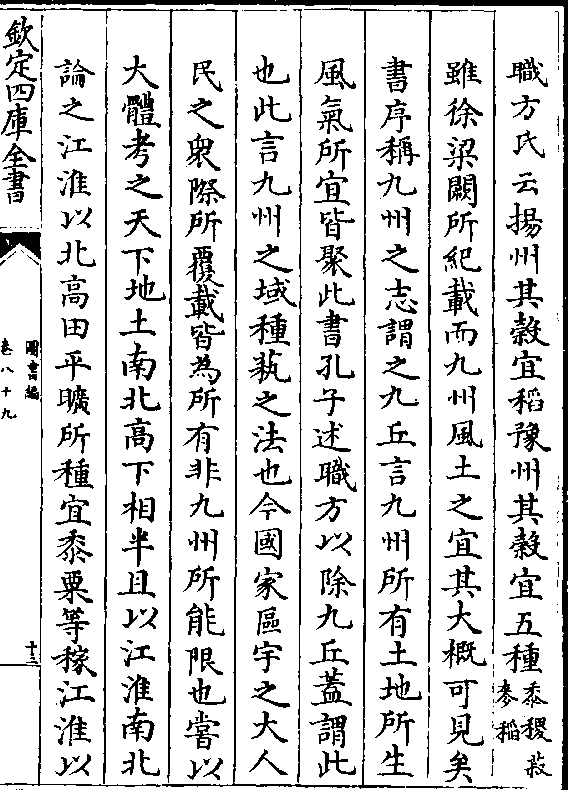 職方氏云揚州其榖宜稻豫州其榖宜五種黍稷菽麥稻
雖徐梁闕所紀載而九州風土之宜其大概可見矣
書序稱九州之志謂之九丘言九州所有土地所生
風氣所宜皆聚此書孔子述職方以除九丘蓋謂此
也此言九州之域種蓺之法也今國家區宇之大人
民之衆際所覆載皆為所有非九州所能限也嘗以
大體考之天下地土南北高下相半且以江淮南北
論之江淮以北高田平曠所種宜黍粟等稼江淮以
欽定四庫全書
圖書編
卷八十九
十三